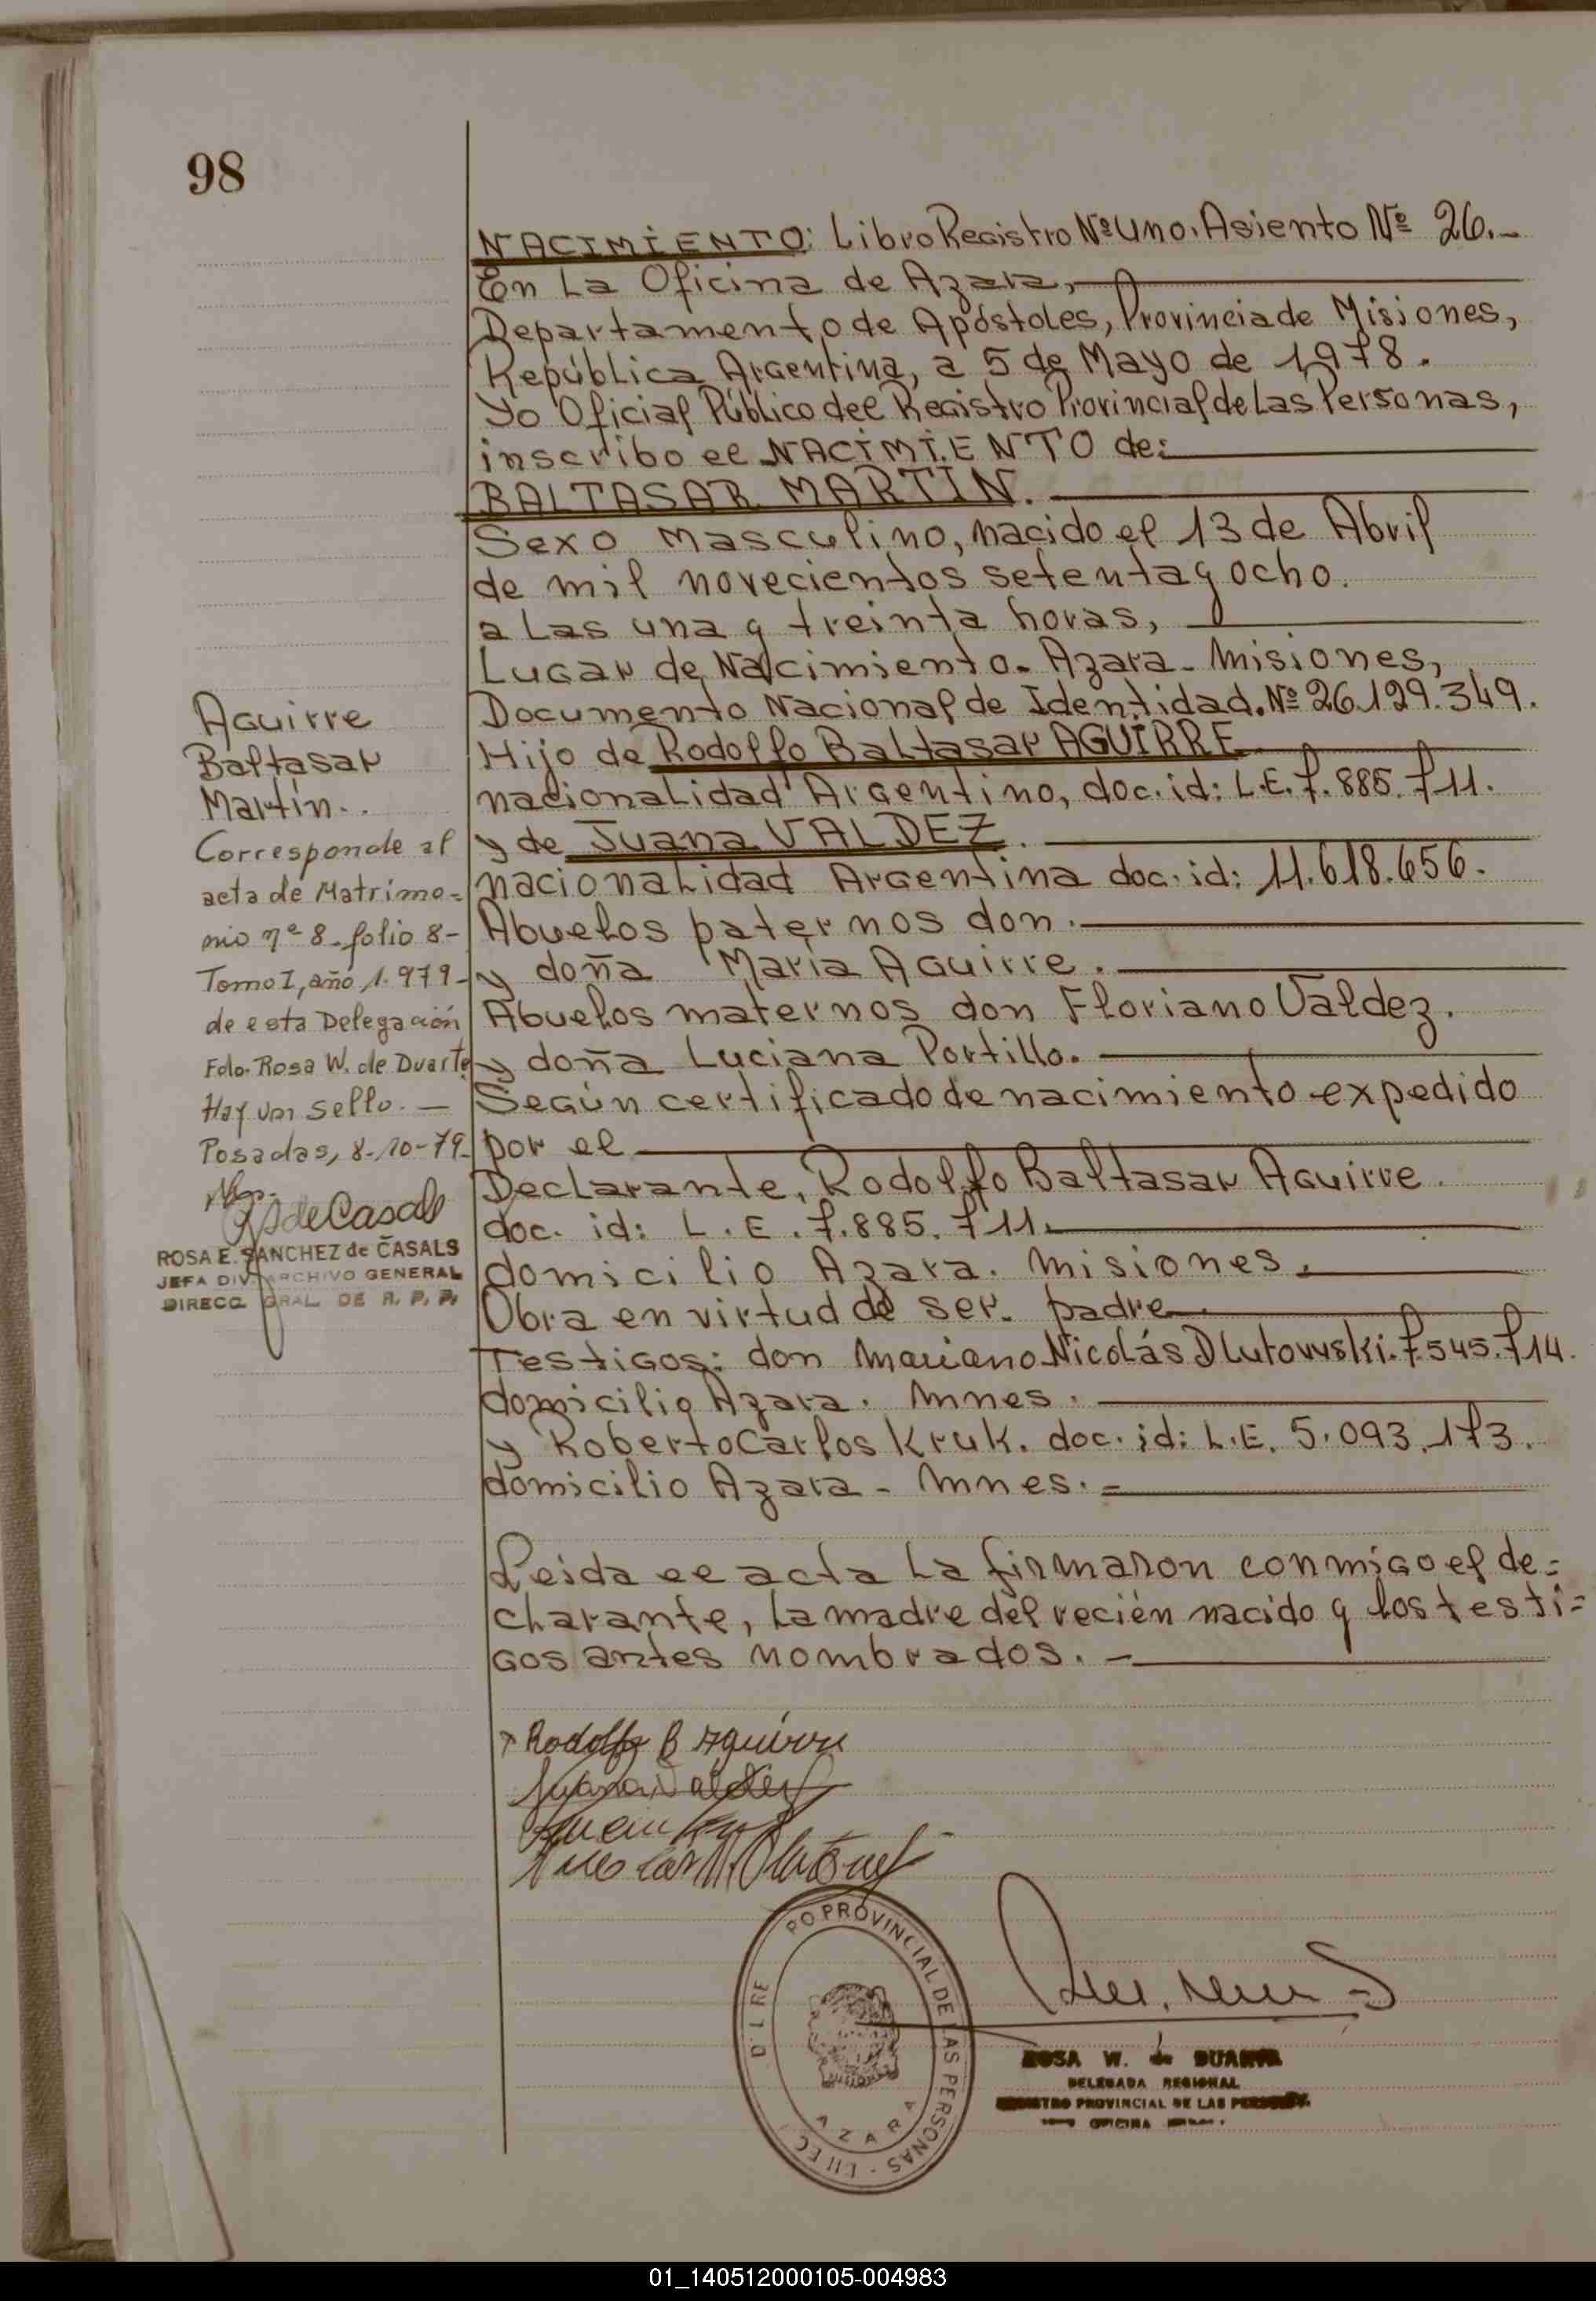 98
NACIMIENTO: Libro Registro Nº Uno. Asiento Nº 26.-
En La Oficina de Azara,
Departamento de Apóstoles, Provincia de Misiones,
República Argentina, a 5 de Mayo de 1978.
Yo Oficial Público del Registro Provincial de Las Personas,
inscribo el NACIMIENTO de:
BALTASAR MARTIN.
Sexo masculino, nacido el 13 de Abril
de mil novecientos setenta y ocho.
a Las una y treinta horas,
Lugar de Nacimiento. Azara - Misiones,
Documento Nacional de Identidad. Nº 26.129.349.
Hijo de Rodolfo Baltasar AGUIRRE
nacionalidad Argentino, doc. id: L.E. 7.885.711.
y de Juana VALDEZ.
nacionalidad Argentina doc. id: 11.618.656.
Abuelos paternos don.
y doña María Aguirre.
Abuelos maternos don Floriano Valdez.
y doña Luciana Portillo.
Según certificado de nacimiento expedido
por el
Declarante, Rodolfo Baltasar Aguirre.
doc. id: L.E. 7.885.711.
domicilio Azara. Misiones.
Obra en virtud de ser. padre
Testigos: don Mariano Nicolás Dlutowski. 7.545.714.
domicilio Azara. Mnes.
y Roberto Carlos Kruk. doc. id: L.E. 5.093.173.
domicilio Azara - Mnes. =
Leida el acta La firmaron conmigo el de=
clarante, La madre del recién nacido y los testi=
gos antes nombrados. -
Aguirre
Baltasar
Martín..
Corresponde al
acta de Matrimo=
nio nº 8 - folio 8-
Tomo I, año 1.979-
de esta Delegación
Fdo. Rosa W. de Duarte
Hay un sello. —
Posadas, 8-10-79-
RSdeCasals
ROSA E. SANCHEZ de CASALS
JEFA DIV. ARCHIVO GENERAL
DIRECC. GRAL. DE R. P. P.
Rodolfo B Aguirre
Juana Valdez
D'L RE PO PROVINCIAL DE LAS PERSONAS
AZARA
ROSA W. de DUARTE
DELEGADA REGIONAL
REGISTRO PROVINCIAL DE LAS PERSONAS
OFICINA
01_140512000105-004983